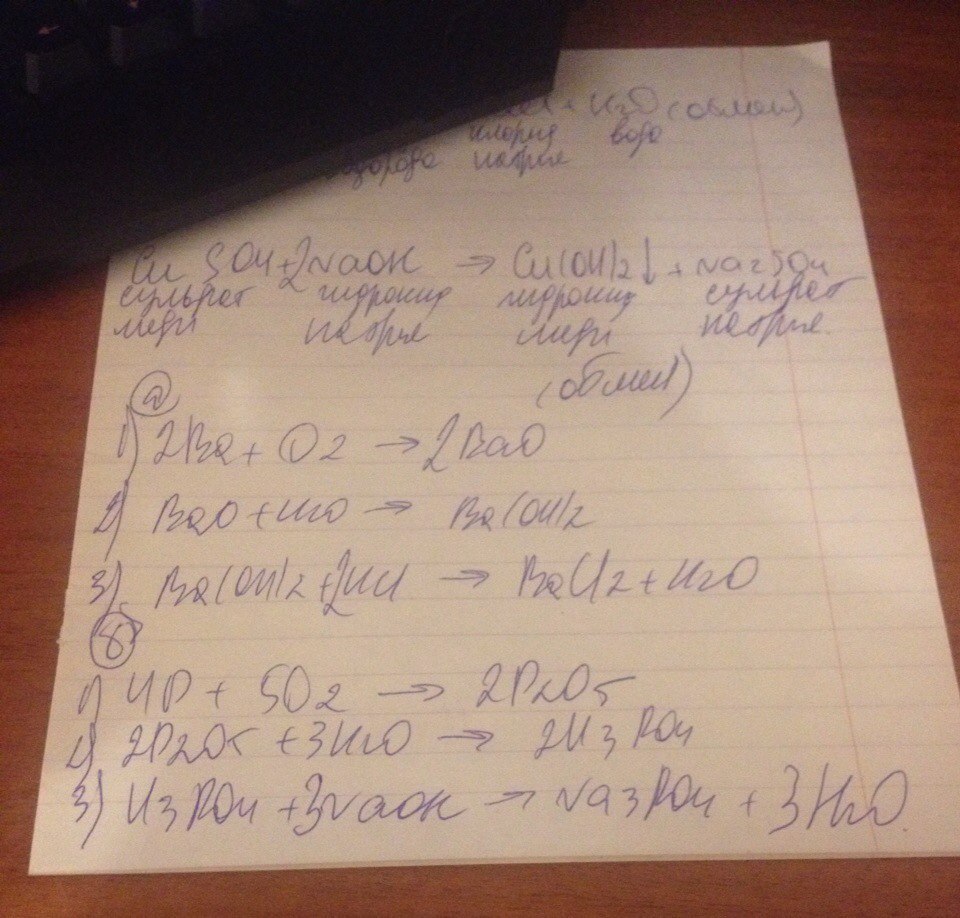 + H2O (обмен)
хлорид вода
натрия
CuSO4 + 2NaOH → Cu(OH)2↓ + Na2SO4
сульфат гидроксид гидроксид сульфат
меди натрия меди натрия.
(обмен)
а
1) 2Ba + O2 → 2BaO
2) BaO + H2O → Ba(OH)2
3) Ba(OH)2 + 2HCl → BaCl2 + H2O
б
1) 4P + 5O2 → 2P2O5
2) 2P2O5 + 3H2O → 2H3PO4
3) H3PO4 + 3NaOH → Na3PO4 + 3H2O